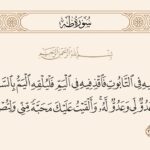 سُورَةُ طه
بِسْمِ اللَّهِ الرَّحْمَٰنِ الرَّحِيمِ
فِي التَّابُوتِ فَاقْذِفِيهِ فِي الْيَمِّ فَلْيُلْقِهِ الْيَمُّ
عَدُوٌّ لِّي وَعَدُوٌّ لَّهُ ۚ وَأَلْقَيْتُ عَلَيْكَ مَحَبَّةً مِّنِّي